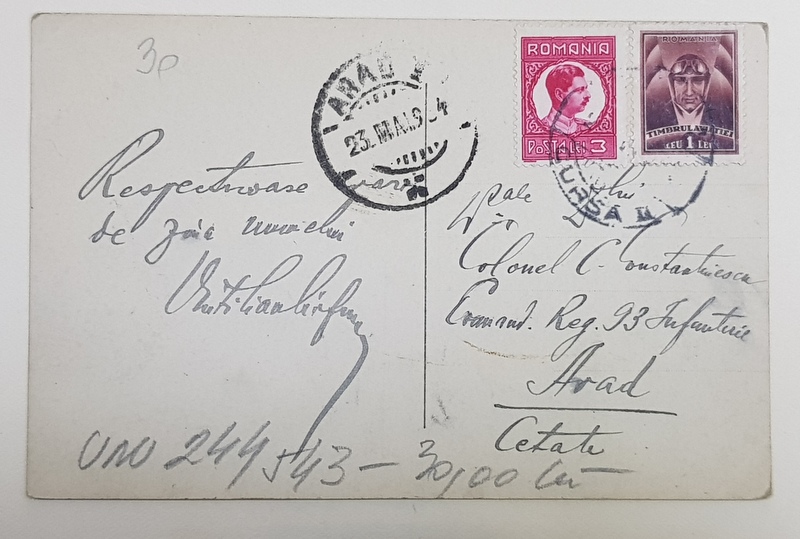 30
ARAD
23. MAI. 9 4
ROMANIA
POSTA LEI 3
ROMANIA
TIMBRUL AVIATIEI
LEU 1 LEU
Respectuoase urări
de ziua numelui
D-sale D-lui
Colonel C. Constantinescu
Comand. Reg. 93 Infanterie
Arad
Cetate
UNU 244 543 - 30,00 lei